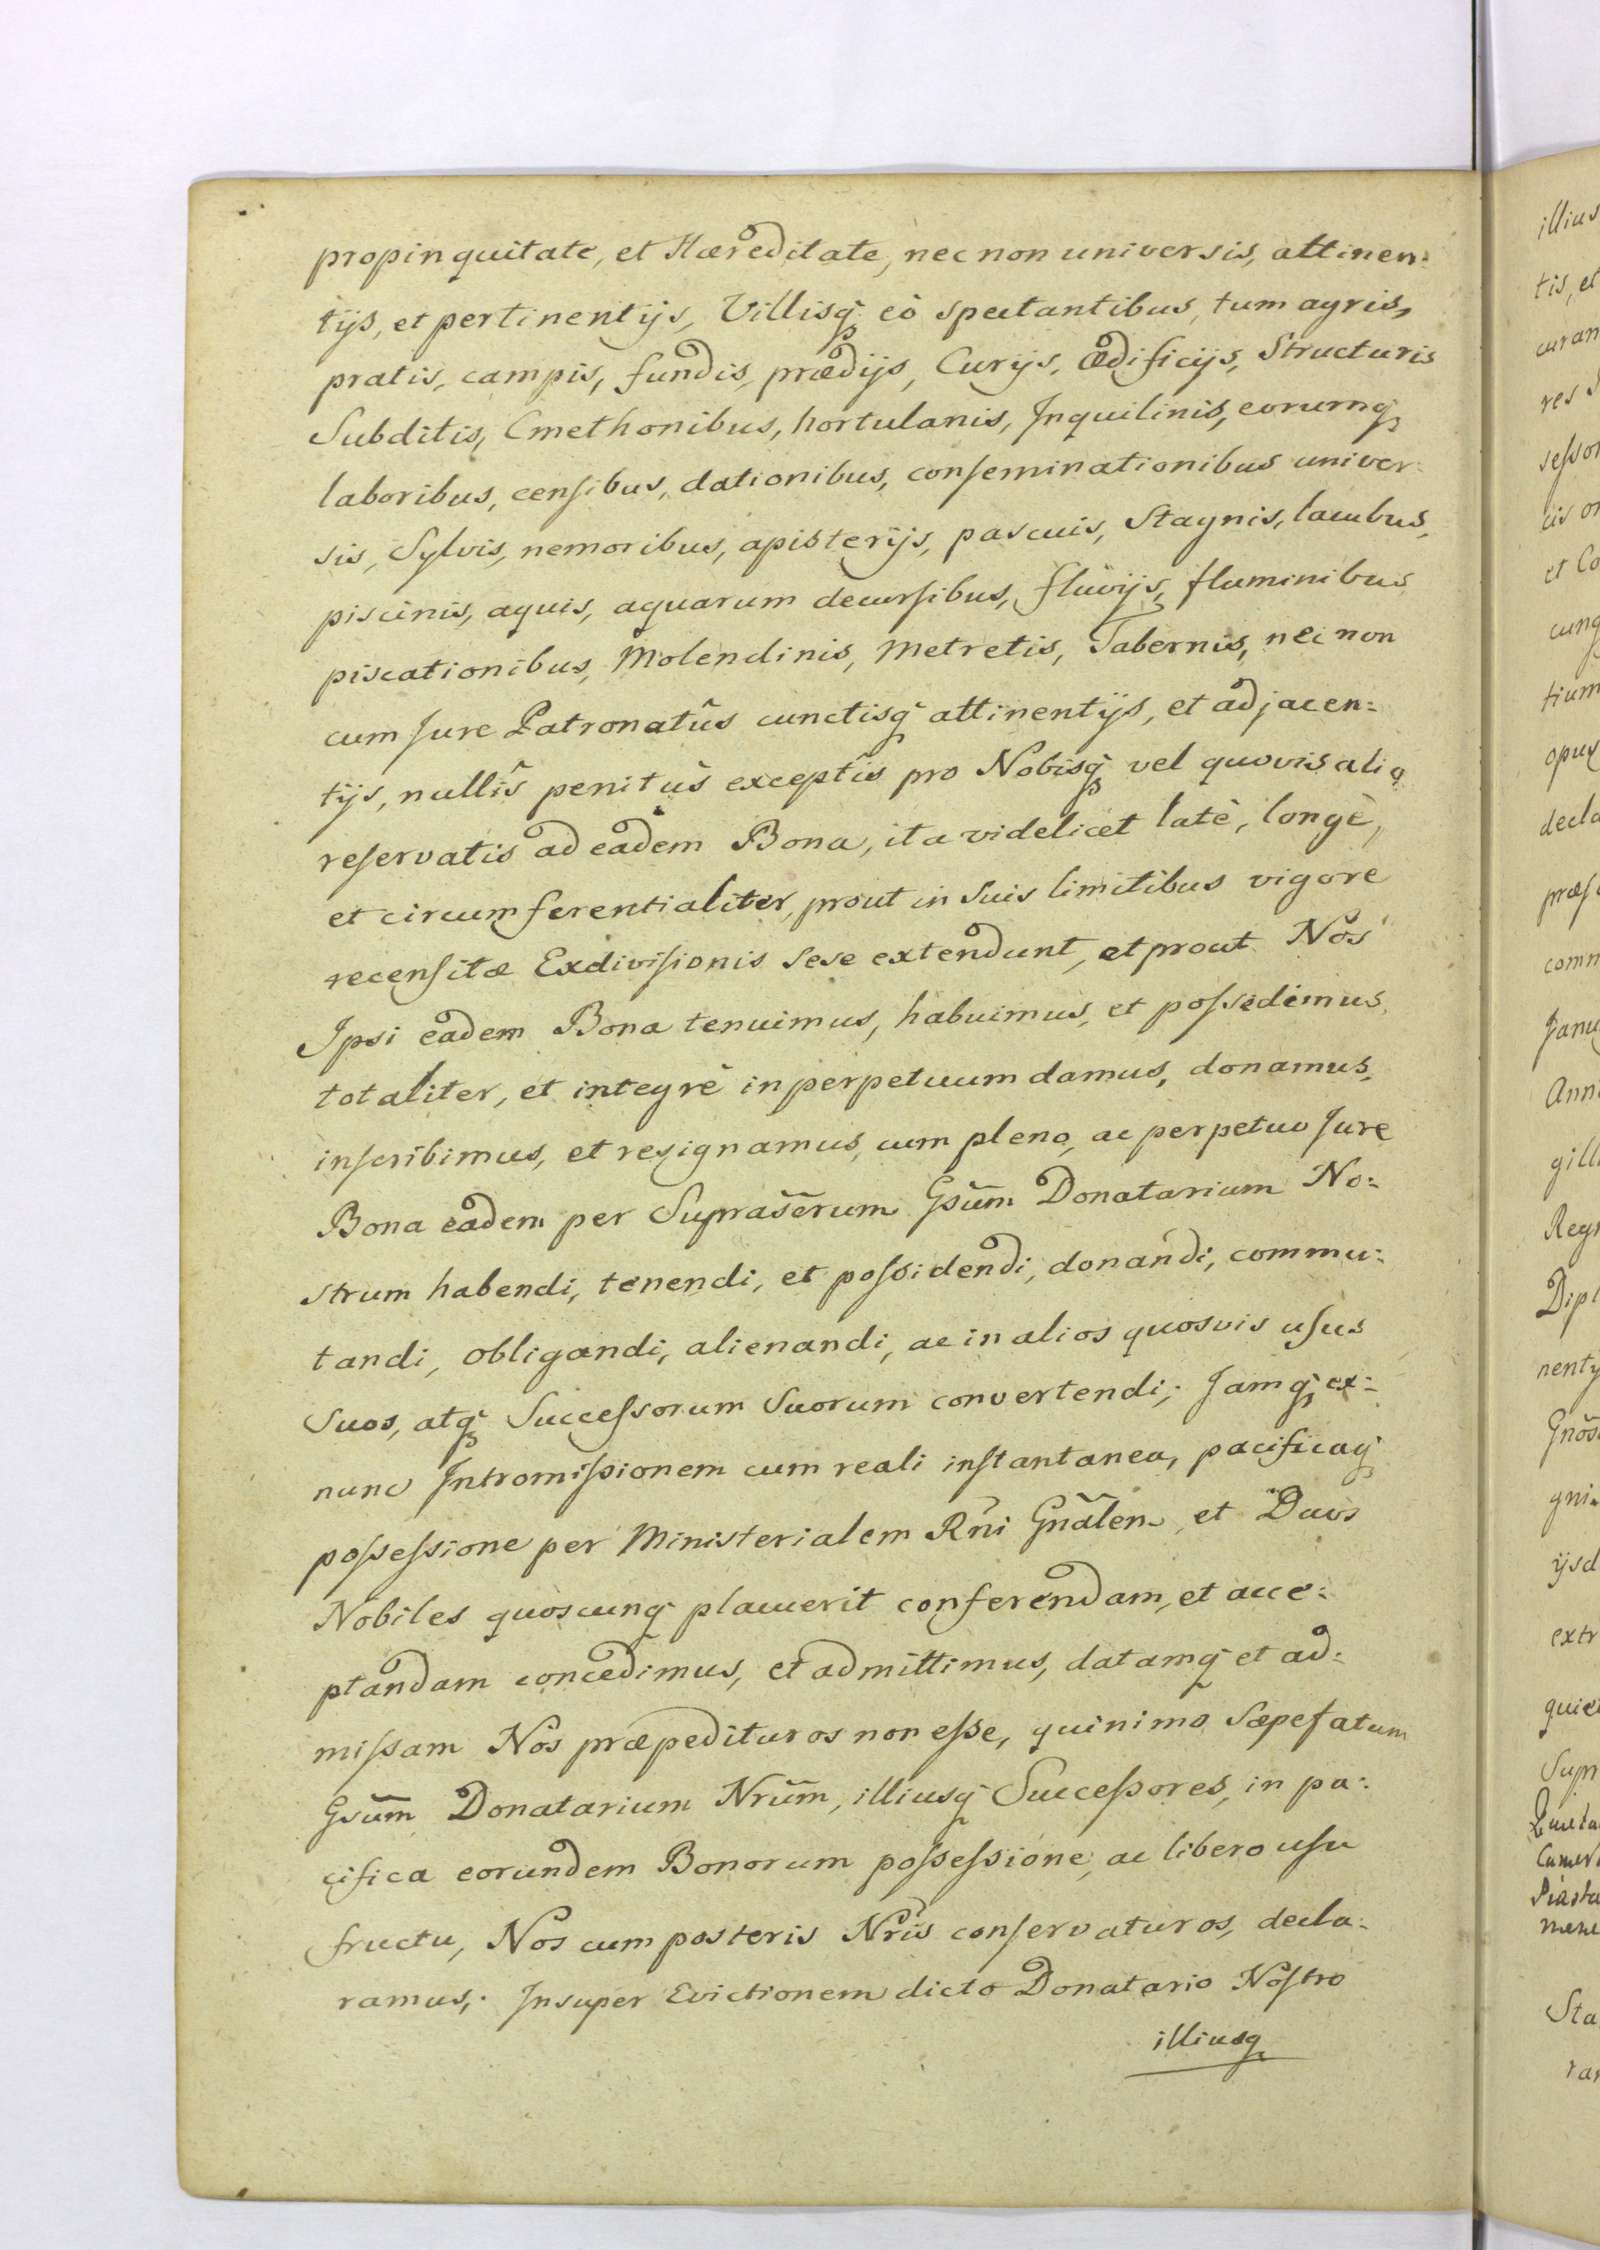 propinquitate, et Hæreditate, nec non universis, attinen:
tijs, et pertinentijs, Villisq; eò spectantibus, tum agris,
pratis, campis, fundis, prædijs, Curijs, Ædificijs, Structuris
Subditis, Cmethonibus, hortulanis, Inquilinis, eorumq;
laboribus, censibus, dationibus, conseminationibus univer:
sis, Sylvis, nemoribus, apisterijs, pascuis, Stagnis, lacubus,
piscinis, aquis, aquarum decursibus, fluvijs, fluminibus
piscationibus, Molendinis, Metretis, Tabernis, nec non
cum Jure Patronatûs cunctisq; attinentijs, et adjacen:
tijs, nullîs penitùs exceptîs pro Nobisq; vel quovis alio
reservatis ad eadem Bona, ita videlicet latè, longè,
et circumferentialiter, prout in suis limitibus vigore
recensitæ Exdivisionis sese extendunt, et prout Nos
Ipsi eadem Bona tenuimus, habuimus, et possedimus,
totaliter, et integrè in perpetuum damus, donamus,
inscribimus, et resignamus, cum pleno, ac perpetuo Jure
Bona eadem per Suprasc̃rum Gsũm Donatarium No:
strum habendi, tenendi, et possidendi, donandi, commu:
tandi, obligandi, alienandi, ac in alios quosvis usus
Suos, atq; Successorum Suorum convertendi; Jamq; ex:
nunc Intromissionem cum reali instantanea, pacificaq;
possessione per Ministerialem Rñi Gñalem, et Duos
Nobiles quoscunq; placuerit conferendam, et acce:
ptandam concedimus, et admittimus, datamq; et ad:
missam Nos præpedituros non esse, quinimo Sæpefatum
Gsũm Donatarium Nrũm, illiusq; Successores, in pa:
cifica eorundem Bonorum possessione, ac libero usu
fructu, Nos cum posteris Nr̃is conservaturos, decla:
ramus; Insuper Evictionem dicto Donatario Nostro
illiusq;